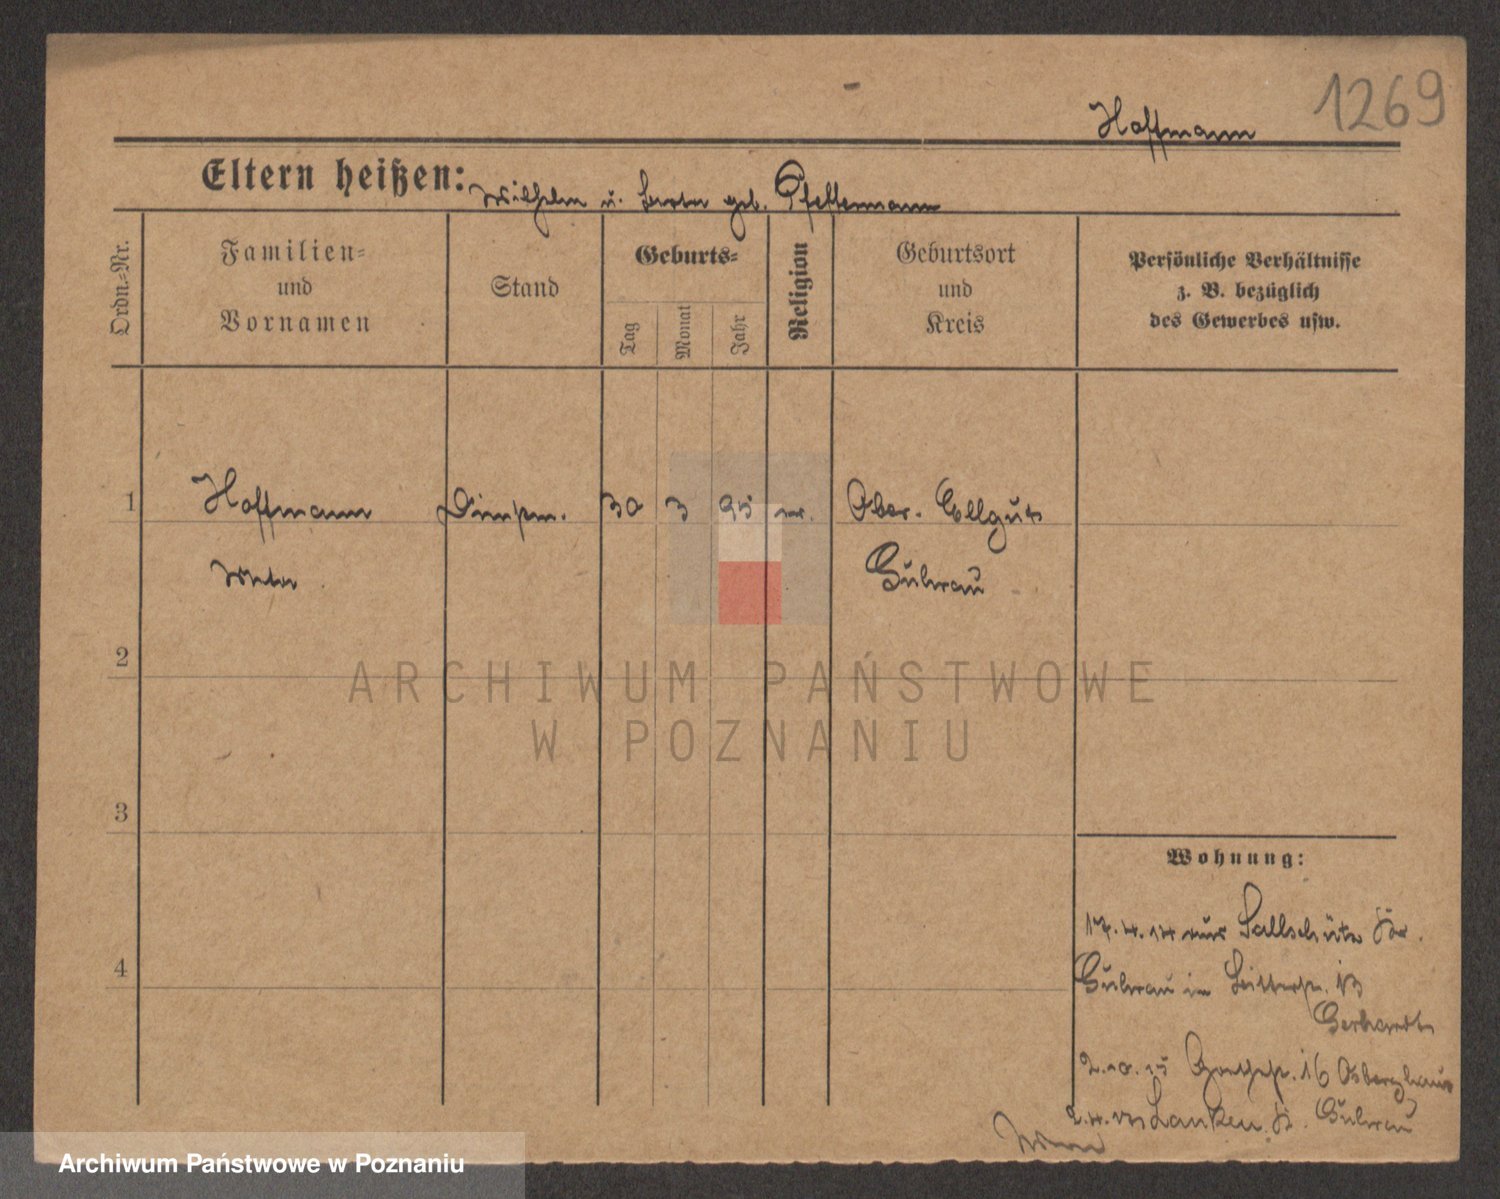 1269
Hoffmann
Eltern heißen: Wilhelm u. geb.
Ordn.-Nr.
Familien-
und
Vornamen
Stand
Geburts-
Tag
Monat
Jahr
Religion
Geburtsort
und
Kreis
Persönliche Verhältnisse
z. B. bezüglich
des Gewerbes usw.
1 Hoffmann 30 3 95 Ober. Ellguth
Guhrau
2
3
4
Wohnung:
17.4.14 aus Sallschütz Kr.
Guhrau in 13
Gerhardt
16
Lanken Kr. Guhrau
ARCHIWUM PAŃSTWOWE
W POZNANIU
Archiwum Państwowe w Poznaniu